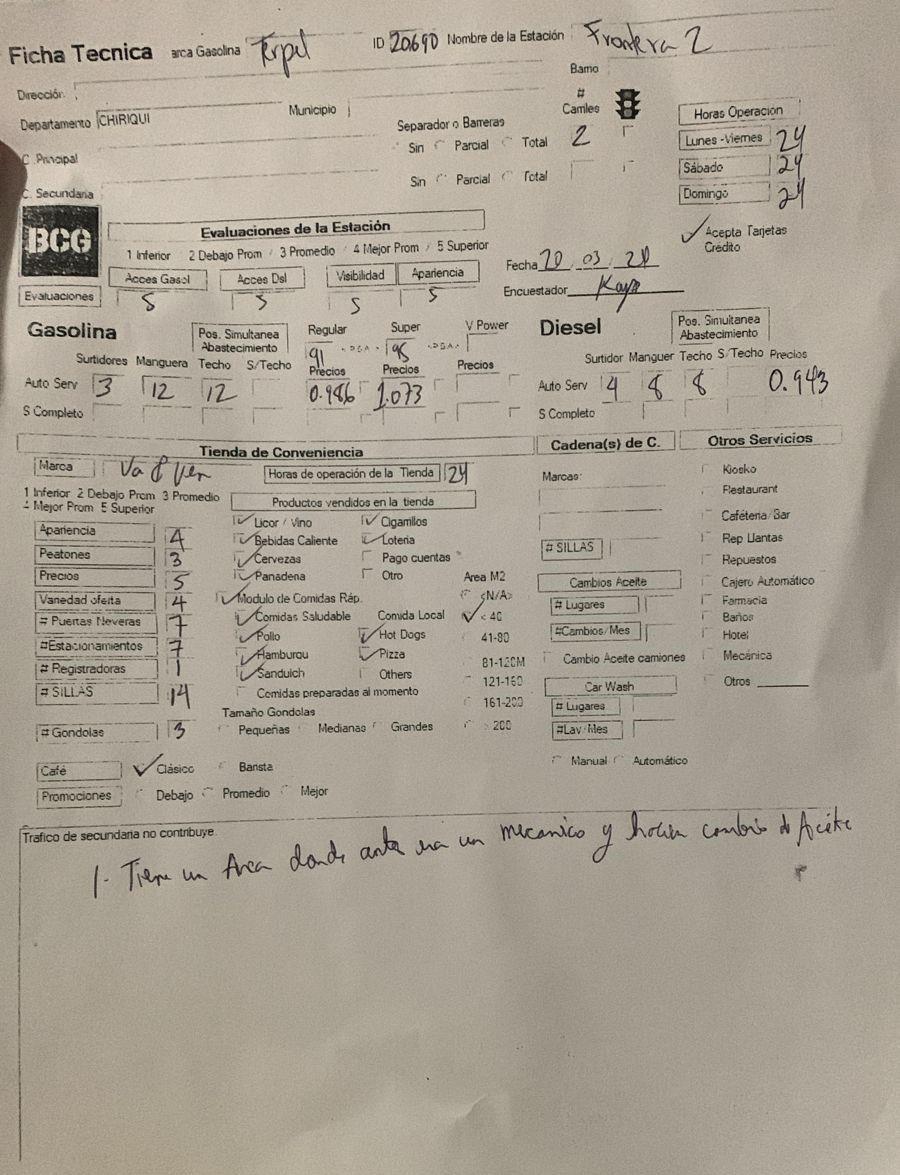 Ficha Tecnica arca Gasolina Terpel ID 20690 Nombre de la Estación Frontera 2
Dirección:
Barrio
Departamento CHIRIQUI Municipio
# Carriles
Horas Operación
Separador o Barreras
Sin Parcial Total 2
Lunes -Viernes 24
C. Principal
Sábado 24
Sin Parcial Total
Domingo 24
C. Secundaria
BCG
Evaluaciones de la Estación
Acepta Tarjetas Crédito
1 Inferior 2 Debajo Prom / 3 Promedio / 4 Mejor Prom / 5 Superior
Fecha 20 03 21
Acces Gasol Acces Dsl Visibilidad Apariencia
Encuestador
Evaluaciones 5 5 5 5
Gasolina
Pos. Simultanea Abastecimiento
Regular Super V Power
91 95
Diesel
Pos. Simultanea Abastecimiento
Surtidores Manguera Techo S/Techo Precios Precios Precios
Surtidor Manguer Techo S/Techo Precios
Auto Serv 3 12 12 0.986 1.073
Auto Serv 4 8 8 0.943
S Completo
S Completo
Tienda de Conveniencia
Cadena(s) de C.
Otros Servicios
Marca Va & Ven Horas de operación de la Tienda 24
1 Inferior 2 Debajo Prom 3 Promedio
4 Mejor Prom 5 Superior
Productos vendidos en la tienda
Apariencia 4
Peatones 3
Precios 5
Variedad oferta 4
# Puertas Neveras 7
#Estacionamientos 7
# Registradoras 1
# SILLAS 14
# Gondolas 3
Licor / Vino Cigarrillos
Bebidas Caliente Loteria
Cervezas Pago cuentas
Panaderia Otro
Modulo de Comidas Ráp.
Comidas Saludable Comida Local
Pollo Hot Dogs
Hamburgu Pizza
Sanduich Others
Comidas preparadas al momento
Tamaño Gondolas
Pequeñas Medianas Grandes
Area M2
<N/A>
< 40
41-80
81-120M
121-160
161-200
> 200
Café Clásico Barista
Promociones Debajo Promedio Mejor
Marcas:
# SILLAS
Cambios Aceite
# Lugares
#Cambios/Mes
Cambio Aceite camiones
Car Wash
# Lugares
#Lav/Mes
Manual Automático
Kiosko
Restaurant
Cafétería/Bar
Rep Llantas
Repuestos
Cajero Automático
Farmacia
Baños
Hotel
Mecánica
Otros
Trafico de secundaria no contribuye.
1- Tiene un Area donde antes era un mecanico y hacian cambio de Aceite